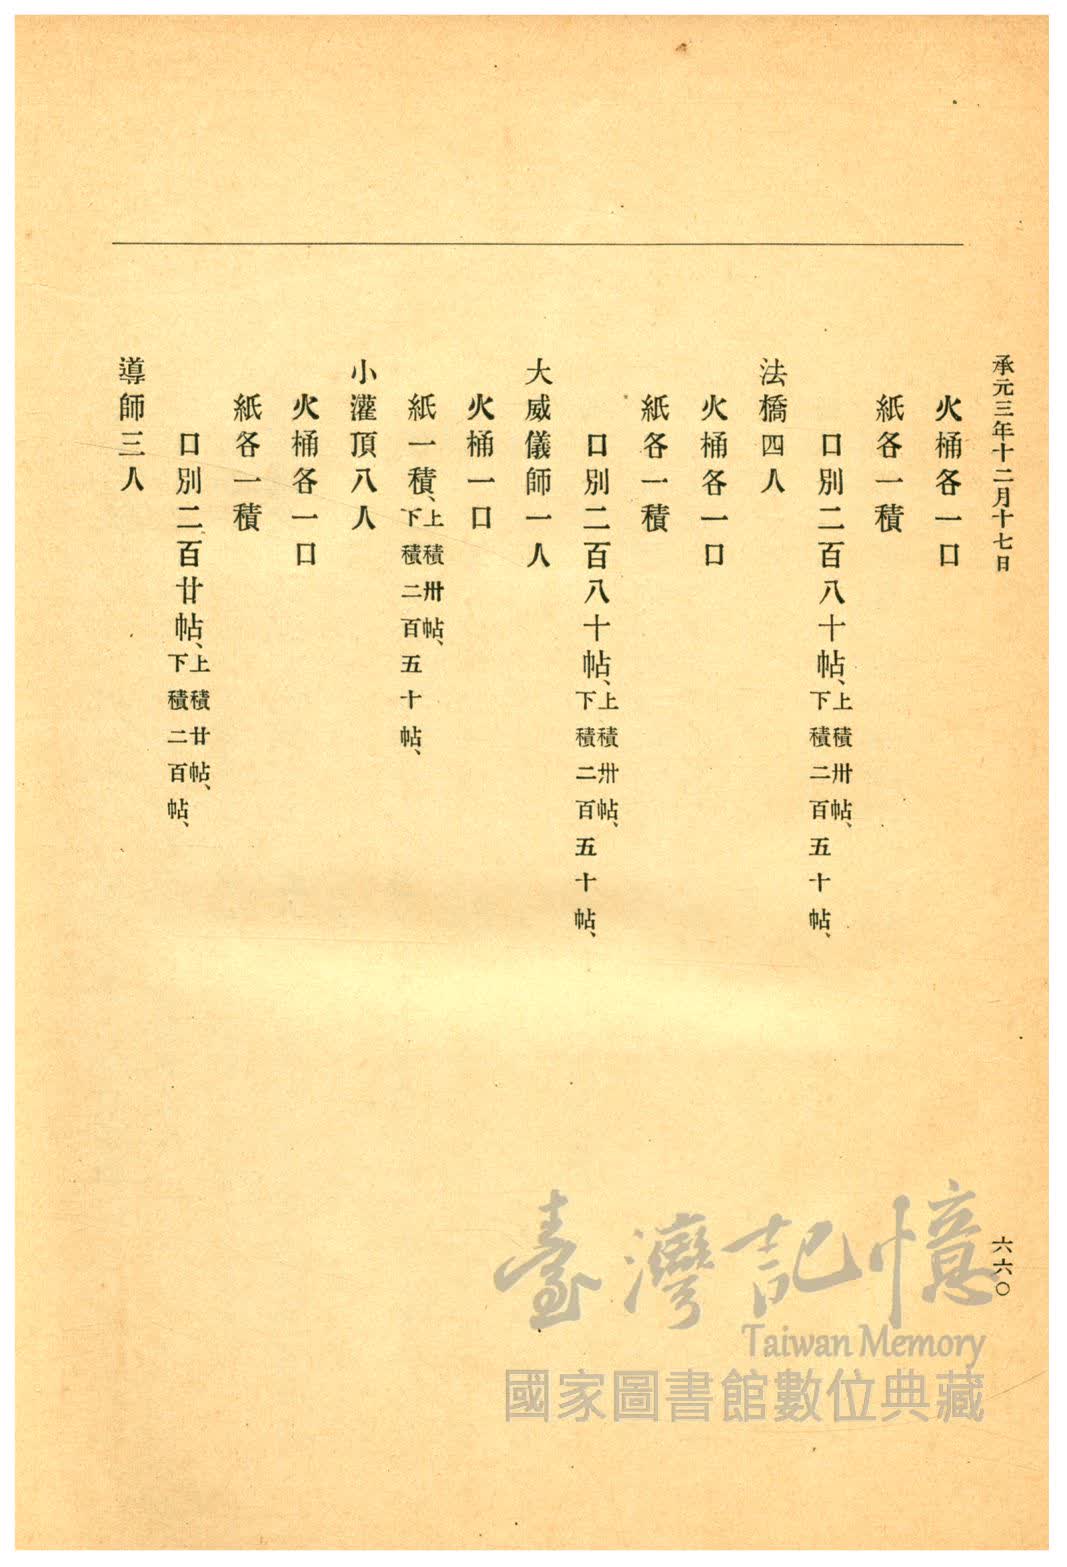 承元三年十二月十七日
火桶各一口
紙各一積
口別二百八十帖、上積卅帖、下積二百五十帖、
法橋四人
火桶各一口
紙各一積
口別二百八十帖、上積卅帖、下積二百五十帖、
大威儀師一人
火桶一口
紙一積、上積卅帖、下積二百五十帖、
小灌頂八人
火桶各一口
紙各一積
口別二百廿帖、上積廿帖、下積二百帖、
導師三人
六六〇
臺灣記憶
Taiwan Memory
國家圖書館數位典藏